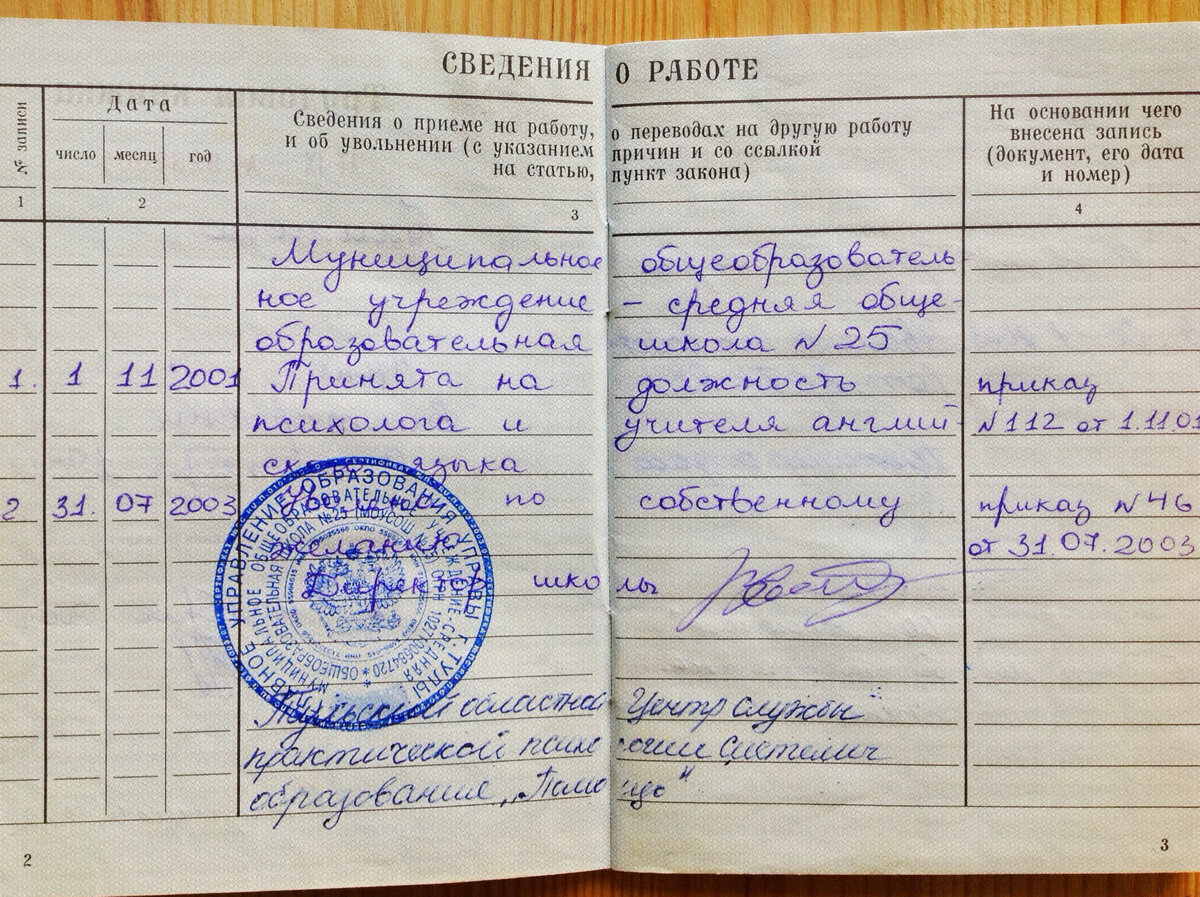 СВЕДЕНИЯ О РАБОТЕ
№ записи
Дата
число месяц год
Сведения о приеме на работу, о переводах на другую работу
и об увольнении (с указанием причин и со ссылкой
на статью, пункт закона)
На основании чего
внесена запись
(документ, его дата
и номер)
1 2 3 4
Муниципальное общеобразователь-
ное учреждение - средняя обще-
образовательная школа №25
1. 1 11 2001 Принята на должность приказ
психолога и учителя англий- №112 от 1.11.01
ского языка
2 31. 07 2003 по собственному приказ №46
желанию от 31.07.2003
Директор школы
УПРАВЛЕНИЕ ОБРАЗОВАНИЯ УПРАВЫ Г. ТУЛЫ
МУНИЦИПАЛЬНОЕ ОБЩЕОБРАЗОВАТЕЛЬНОЕ УЧРЕЖДЕНИЕ-СРЕДНЯЯ
ОБЩЕОБРАЗОВАТЕЛЬНАЯ ШКОЛА №25
Тульский областной Центр службы
практической психологии
образования „Помощь"
2
3